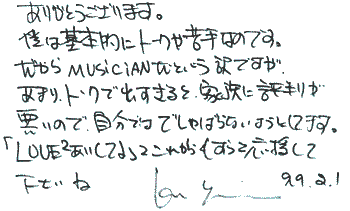 ありがとうございます。
僕は基本的にトークが苦手なのです。
だからMUSiCiANだという訳ですが
あまり、トークで出すぎると、家族に評判が
悪いので、自分でもでしゃばらないようにしてます。
「LOVE²あいしてる」これからもずっと応援して
下さいね
99.2.1